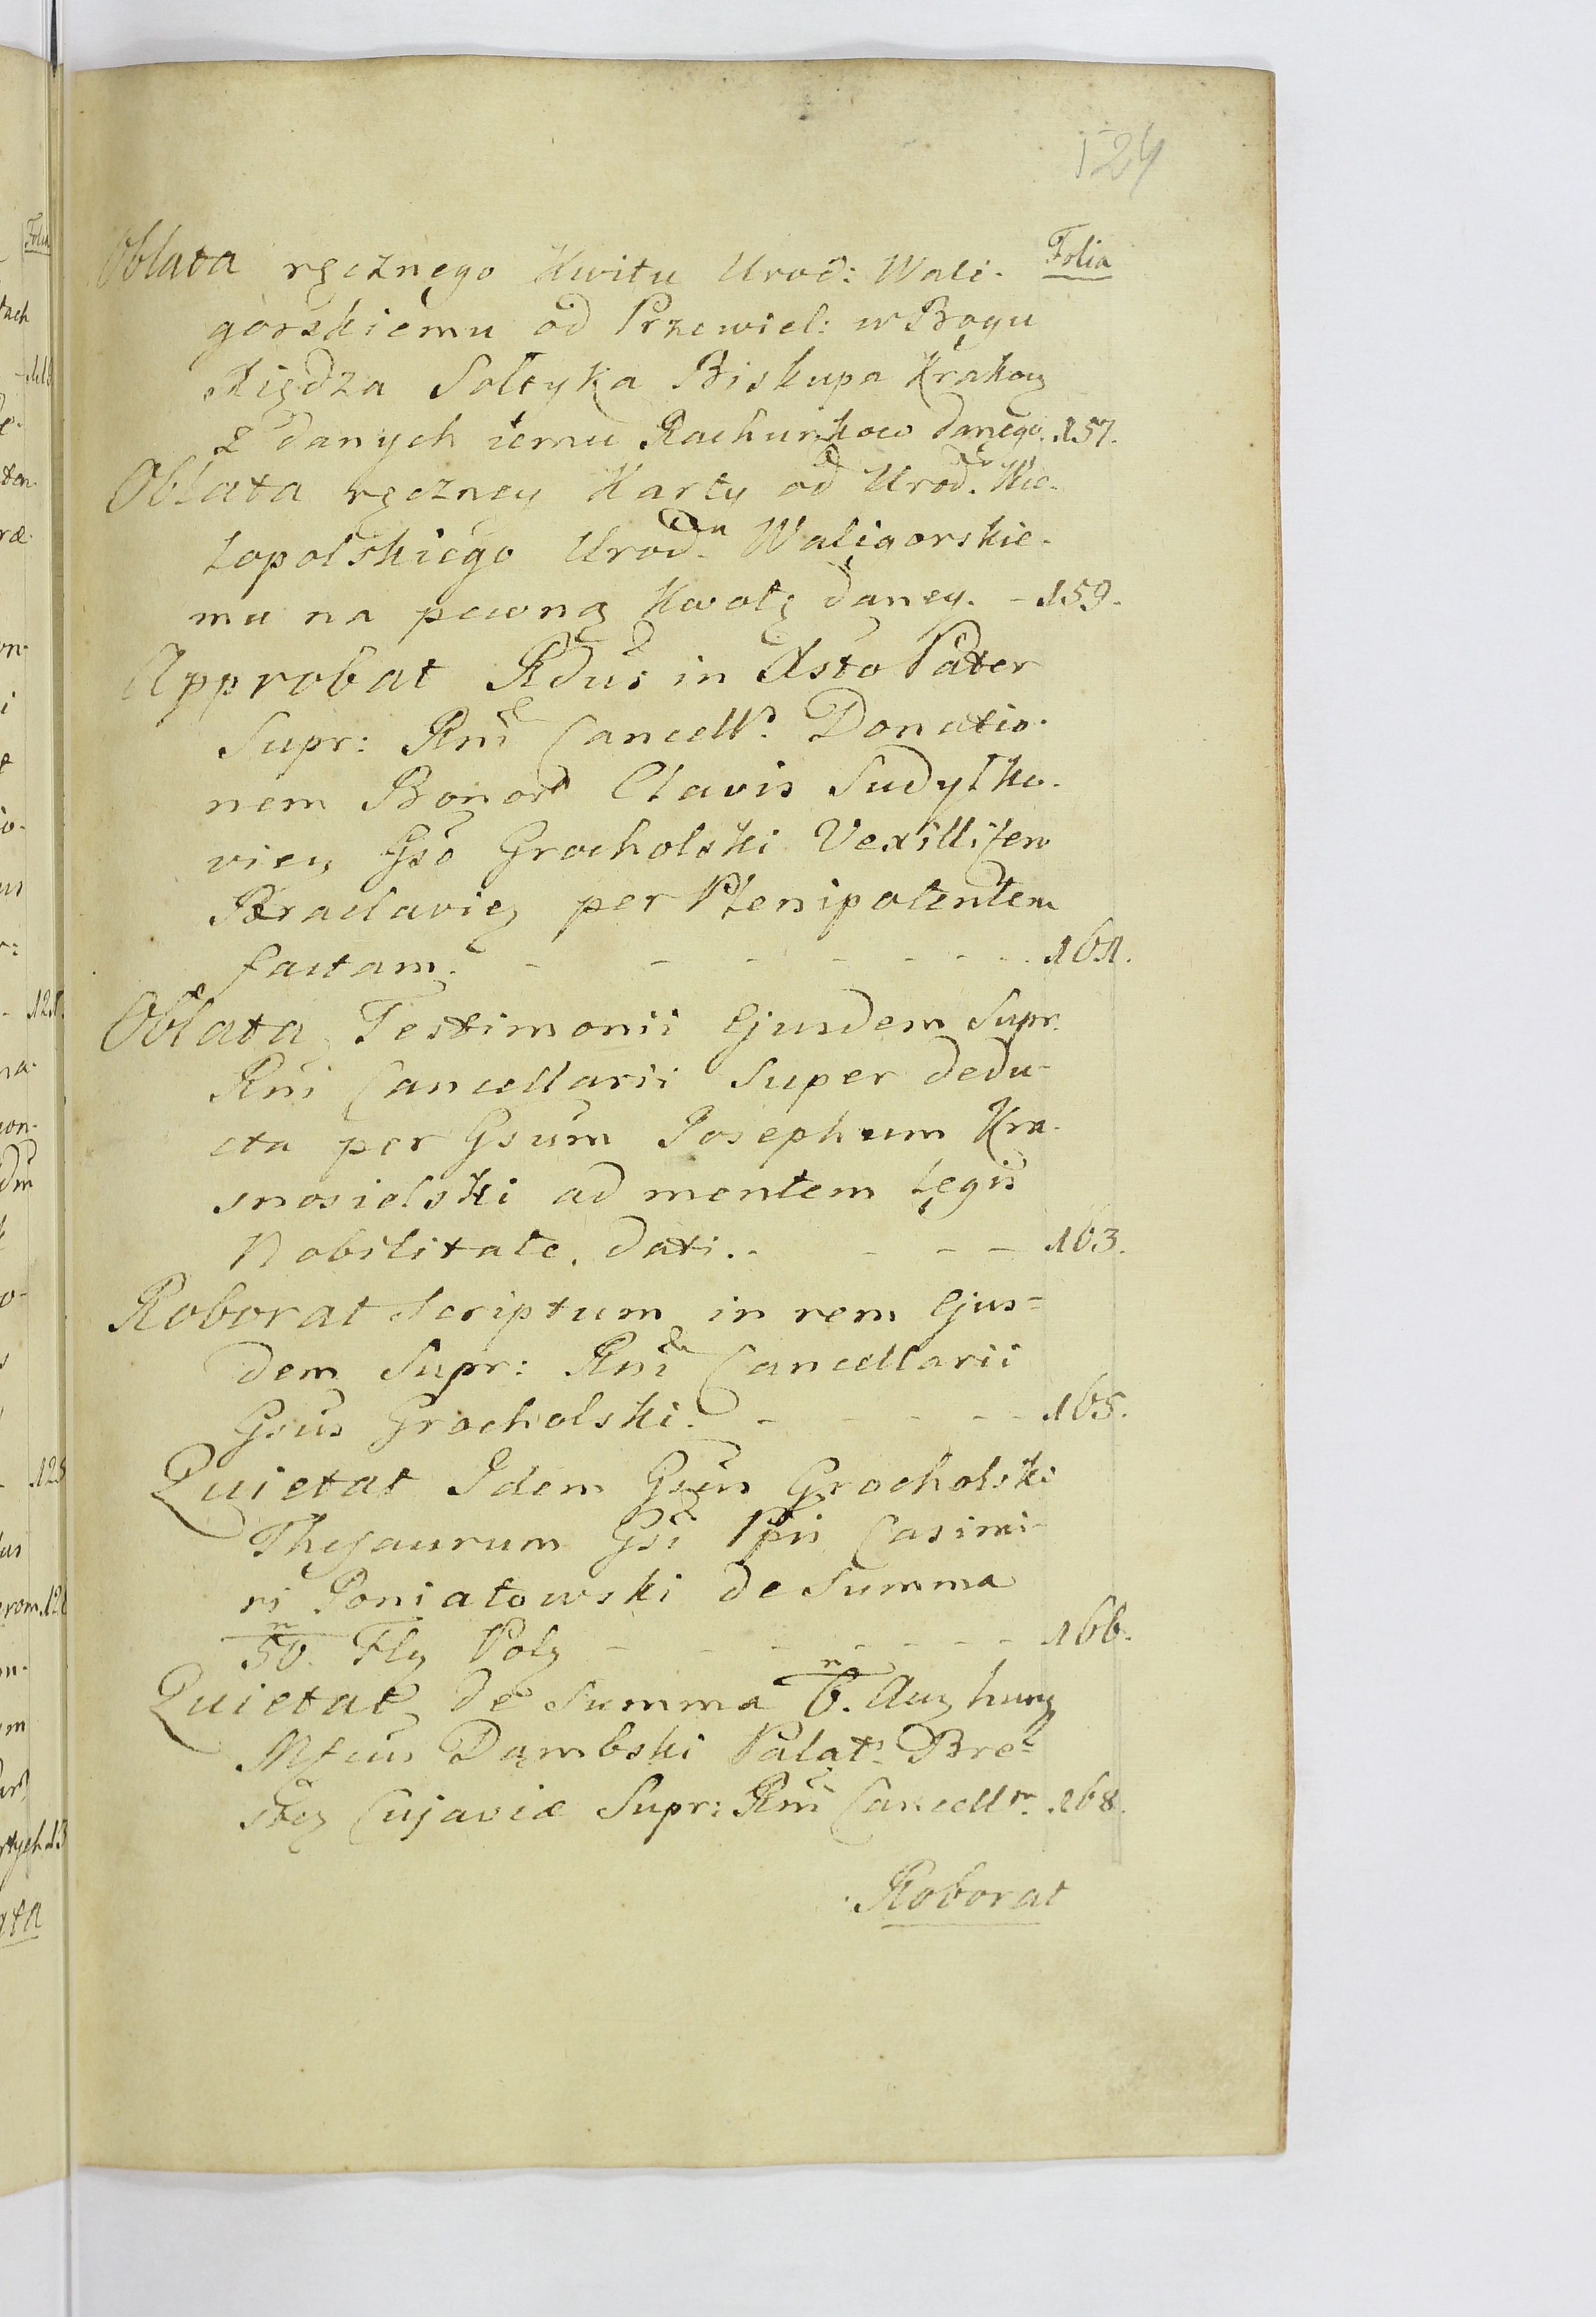 124
Folia
Oblata ręcznego Kwitu Urod: Wali-
gorskiemu od Przewiel: w Bogu
Xiędza Sołtyka Biskupa Krakow
z danych iemu Rachunkow danego. 157.
Oblata ręczney Karty od Urod. Wie-
lopolskiego Urod. Waligorskie-
mu na pewną Kwotę daney. - 159.
Approbat Rdus in Xsto Pater
Supr: Rni Cancell. Donatio-
nem Bonor Clavis Sudyłko-
vien Gso Grocholski Vexillifero
Braclavien per Plenipotentem
factam. - - - - - - 161.
Oblata Testimonii Ejusdem Supr.
Rni Cancellarii Super dedu-
cta per Gsum Josephum Kra-
snosielski ad mentem Legis
Nobilitate. dati. - - - - 163.
Roborat Scriptum in rem Ejus=
dem Supr: Rni Cancellarii
Gsus Grocholski. - - - - - 165.
Quietat Idem Gsus Grocholski
Thesaurum Gsi Ppis Casimi-
ri Poniatowski de Summa
50. Flz Polz - - - - - - 166.
Quietat de Summa 6. Aurz hunz
Mfcus Dąmbski Palat. Bre-
sten Cujaviæ Supr: Rni Cancell. 168.
Roborat